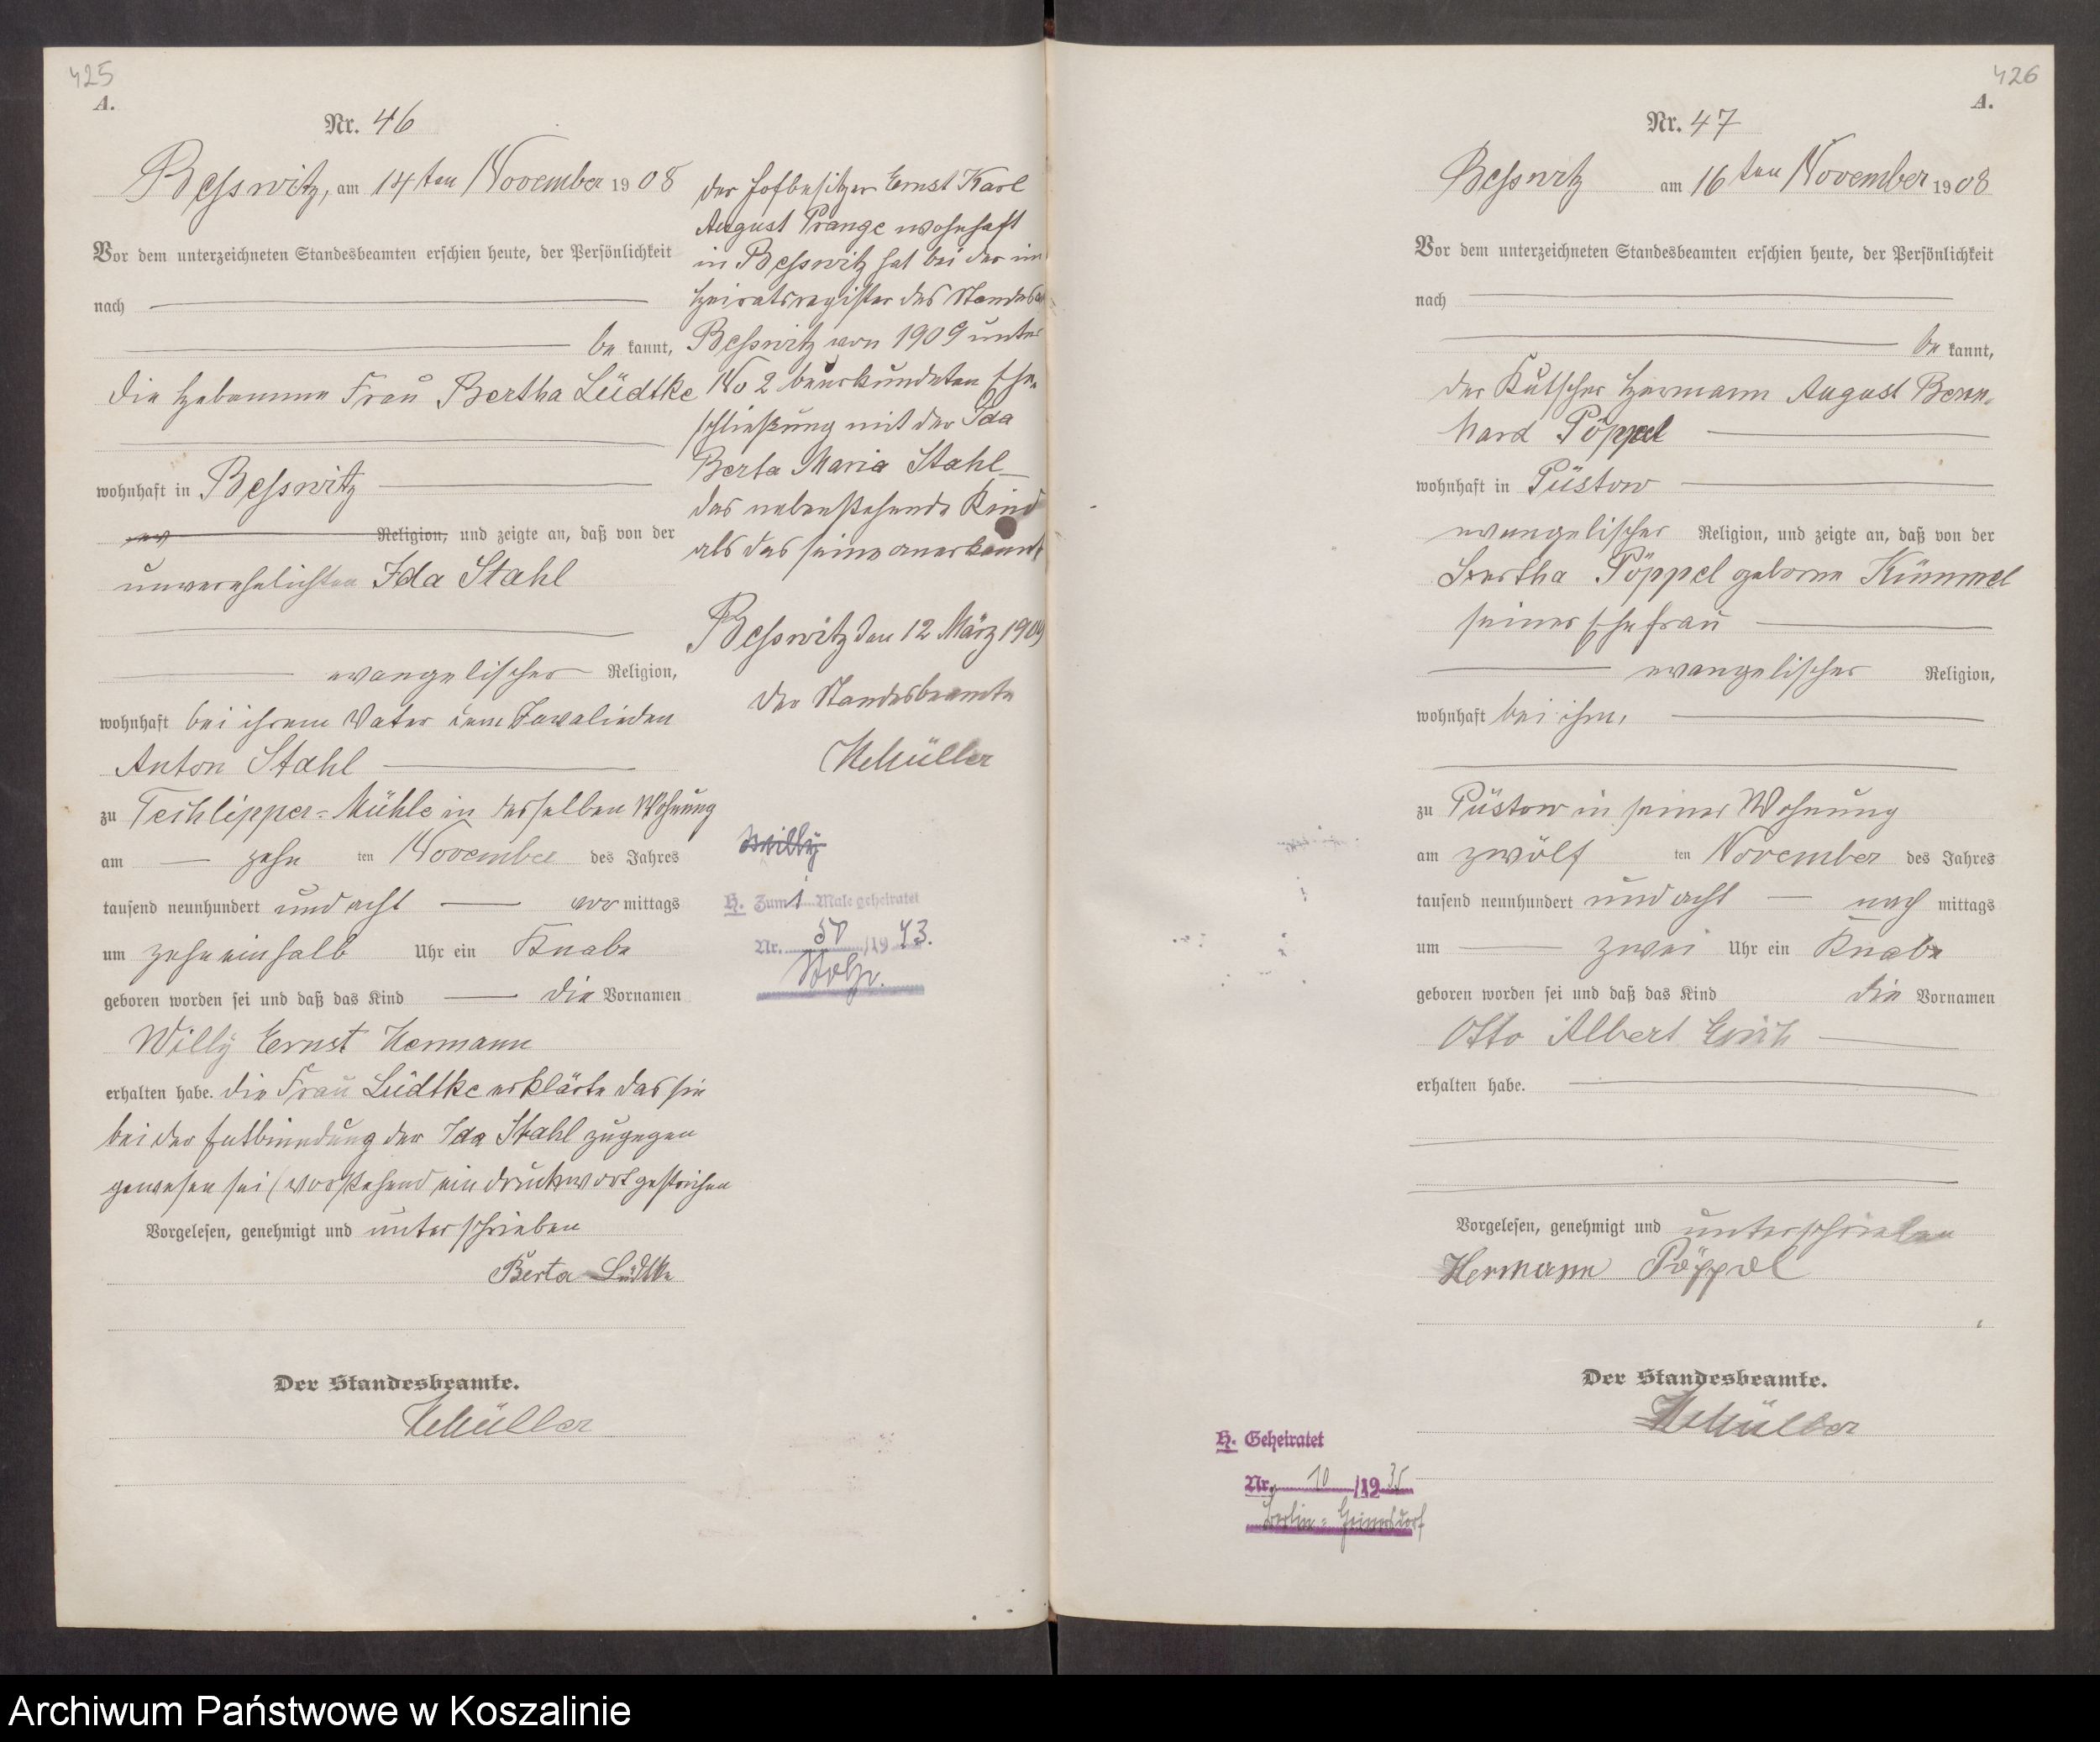 425
A.
Nr. 46
Besswitz, am 14ten November 1908
Vor dem unterzeichneten Standesbeamten erschien heute, der Persönlichkeit
nach
be kannt,
die Hebamme Frau Bertha Lüdtke
wohnhaft in Besswitz
ev Religion, und zeigte an, daß von der
unverehelichten Ida Stahl
evangelischer Religion,
wohnhaft bei ihrem Vater dem Invaliden
Anton Stahl
zu Techlipper-Mühle in desselben Wohnung
am zehn ten November des Jahres
tausend neunhundert und acht vor mittags
um zehneinhalb Uhr ein Knabe
geboren worden sei und daß das Kind die Vornamen
Willy Ernst Hermann
erhalten habe. die Frau Lüdtke erklärte das sie
bei der Entbinndung der Ida Stahl zugegen
gewesen sei (vorstehend ein druckwort gestrichen
Vorgelesen, genehmigt und unterschrieben
Berta Lüdtke
Der Standesbeamte.
Müller
der Hofbesitzer Ernst Karl
August Prange wohnhaft
in Besswitz hat bei der im
Heiratsregister des Standesa
Besswitz von 1909 unter
No 2 beurkundeten Ehe-
schließung mit der Ida
Berta Maria Stahl
das nebenstehende Kind
als das seine anerkannt
Besswitz den 12 März 1909
Der Standesbeamte
Müller
Willy
H. Zum 1 Male geheiratet
Nr. 50 /1943.
426
A.
Nr. 47
Besswitz am 16ten November 1908
Vor dem unterzeichneten Standesbeamten erschien heute, der Persönlichkeit
nach
be kannt,
der Kutscher Hermann August Bern-
hard Pöppel
wohnhaft in Püstow
evangelischer Religion, und zeigte an, daß von der
Bertha Pöppel geborne Kümmel
seiner Ehefrau
evangelischer Religion,
wohnhaft bei ihm,
zu Püstow in seiner Wohnung
am zwölf ten November des Jahres
tausend neunhundert und acht nach mittags
um zwei Uhr ein Knabe
geboren worden sei und daß das Kind die Vornamen
Otto Albert Erich
erhalten habe.
Vorgelesen, genehmigt und unterschrieben
Hermann Pöppel
Der Standesbeamte.
Müller
H. Geheiratet
Nr. 10 /1935
Berlin-
Archiwum Państwowe w Koszalinie